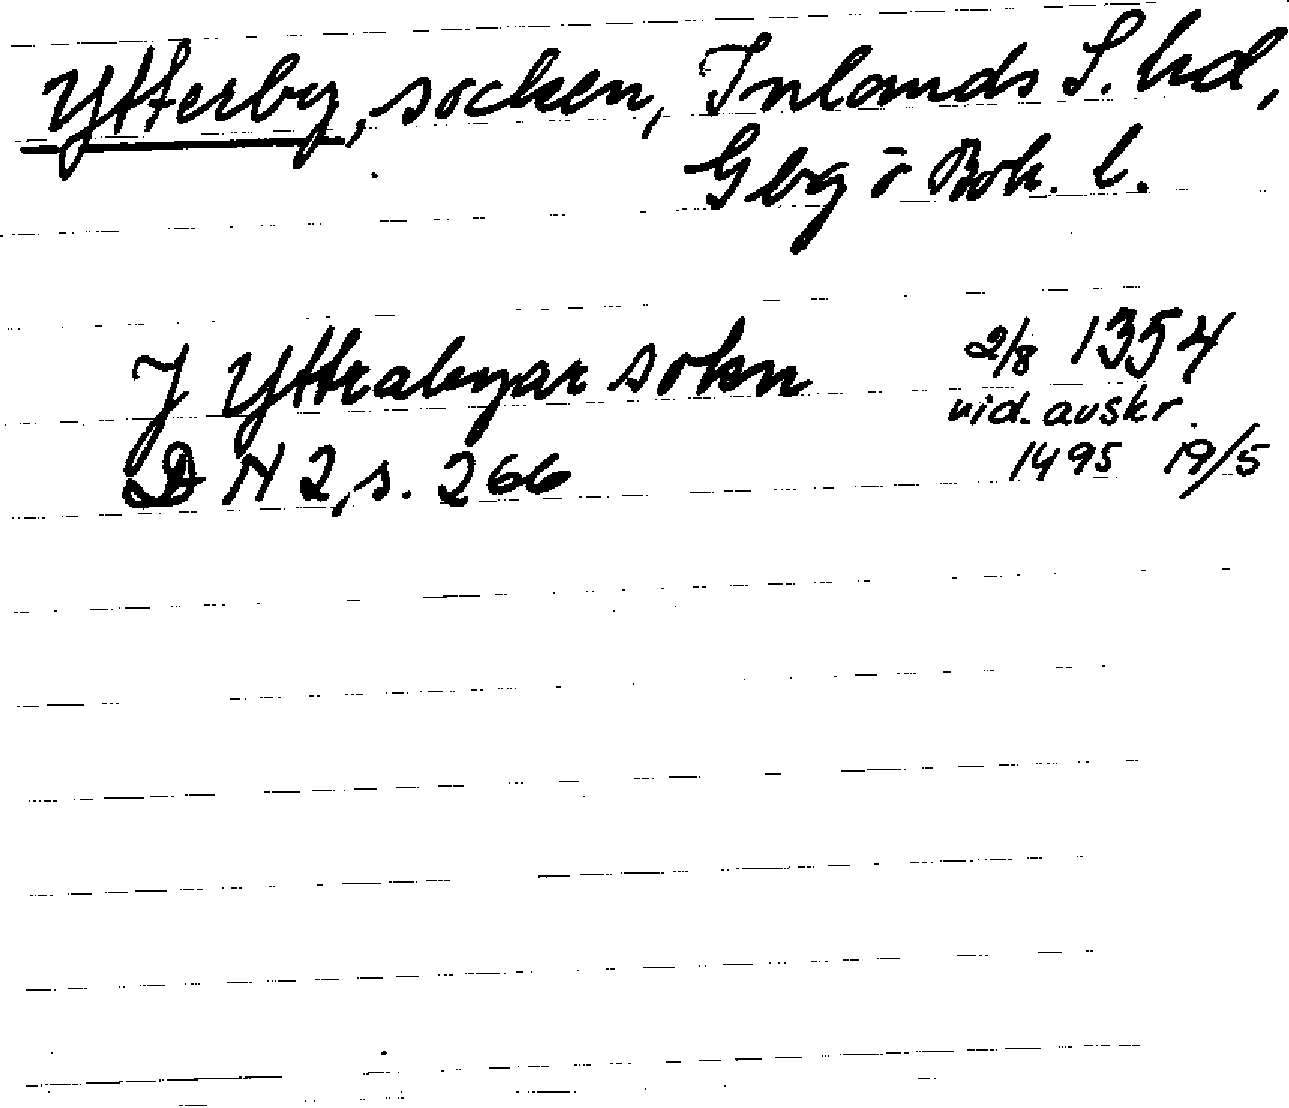 Ytterby, socken, Inlands S. hd,
Gbg o Boh. l.
J Yttrabyar sokn 2/8 1354
vid. avskr.
D N 2, s. 266 1495 19/5